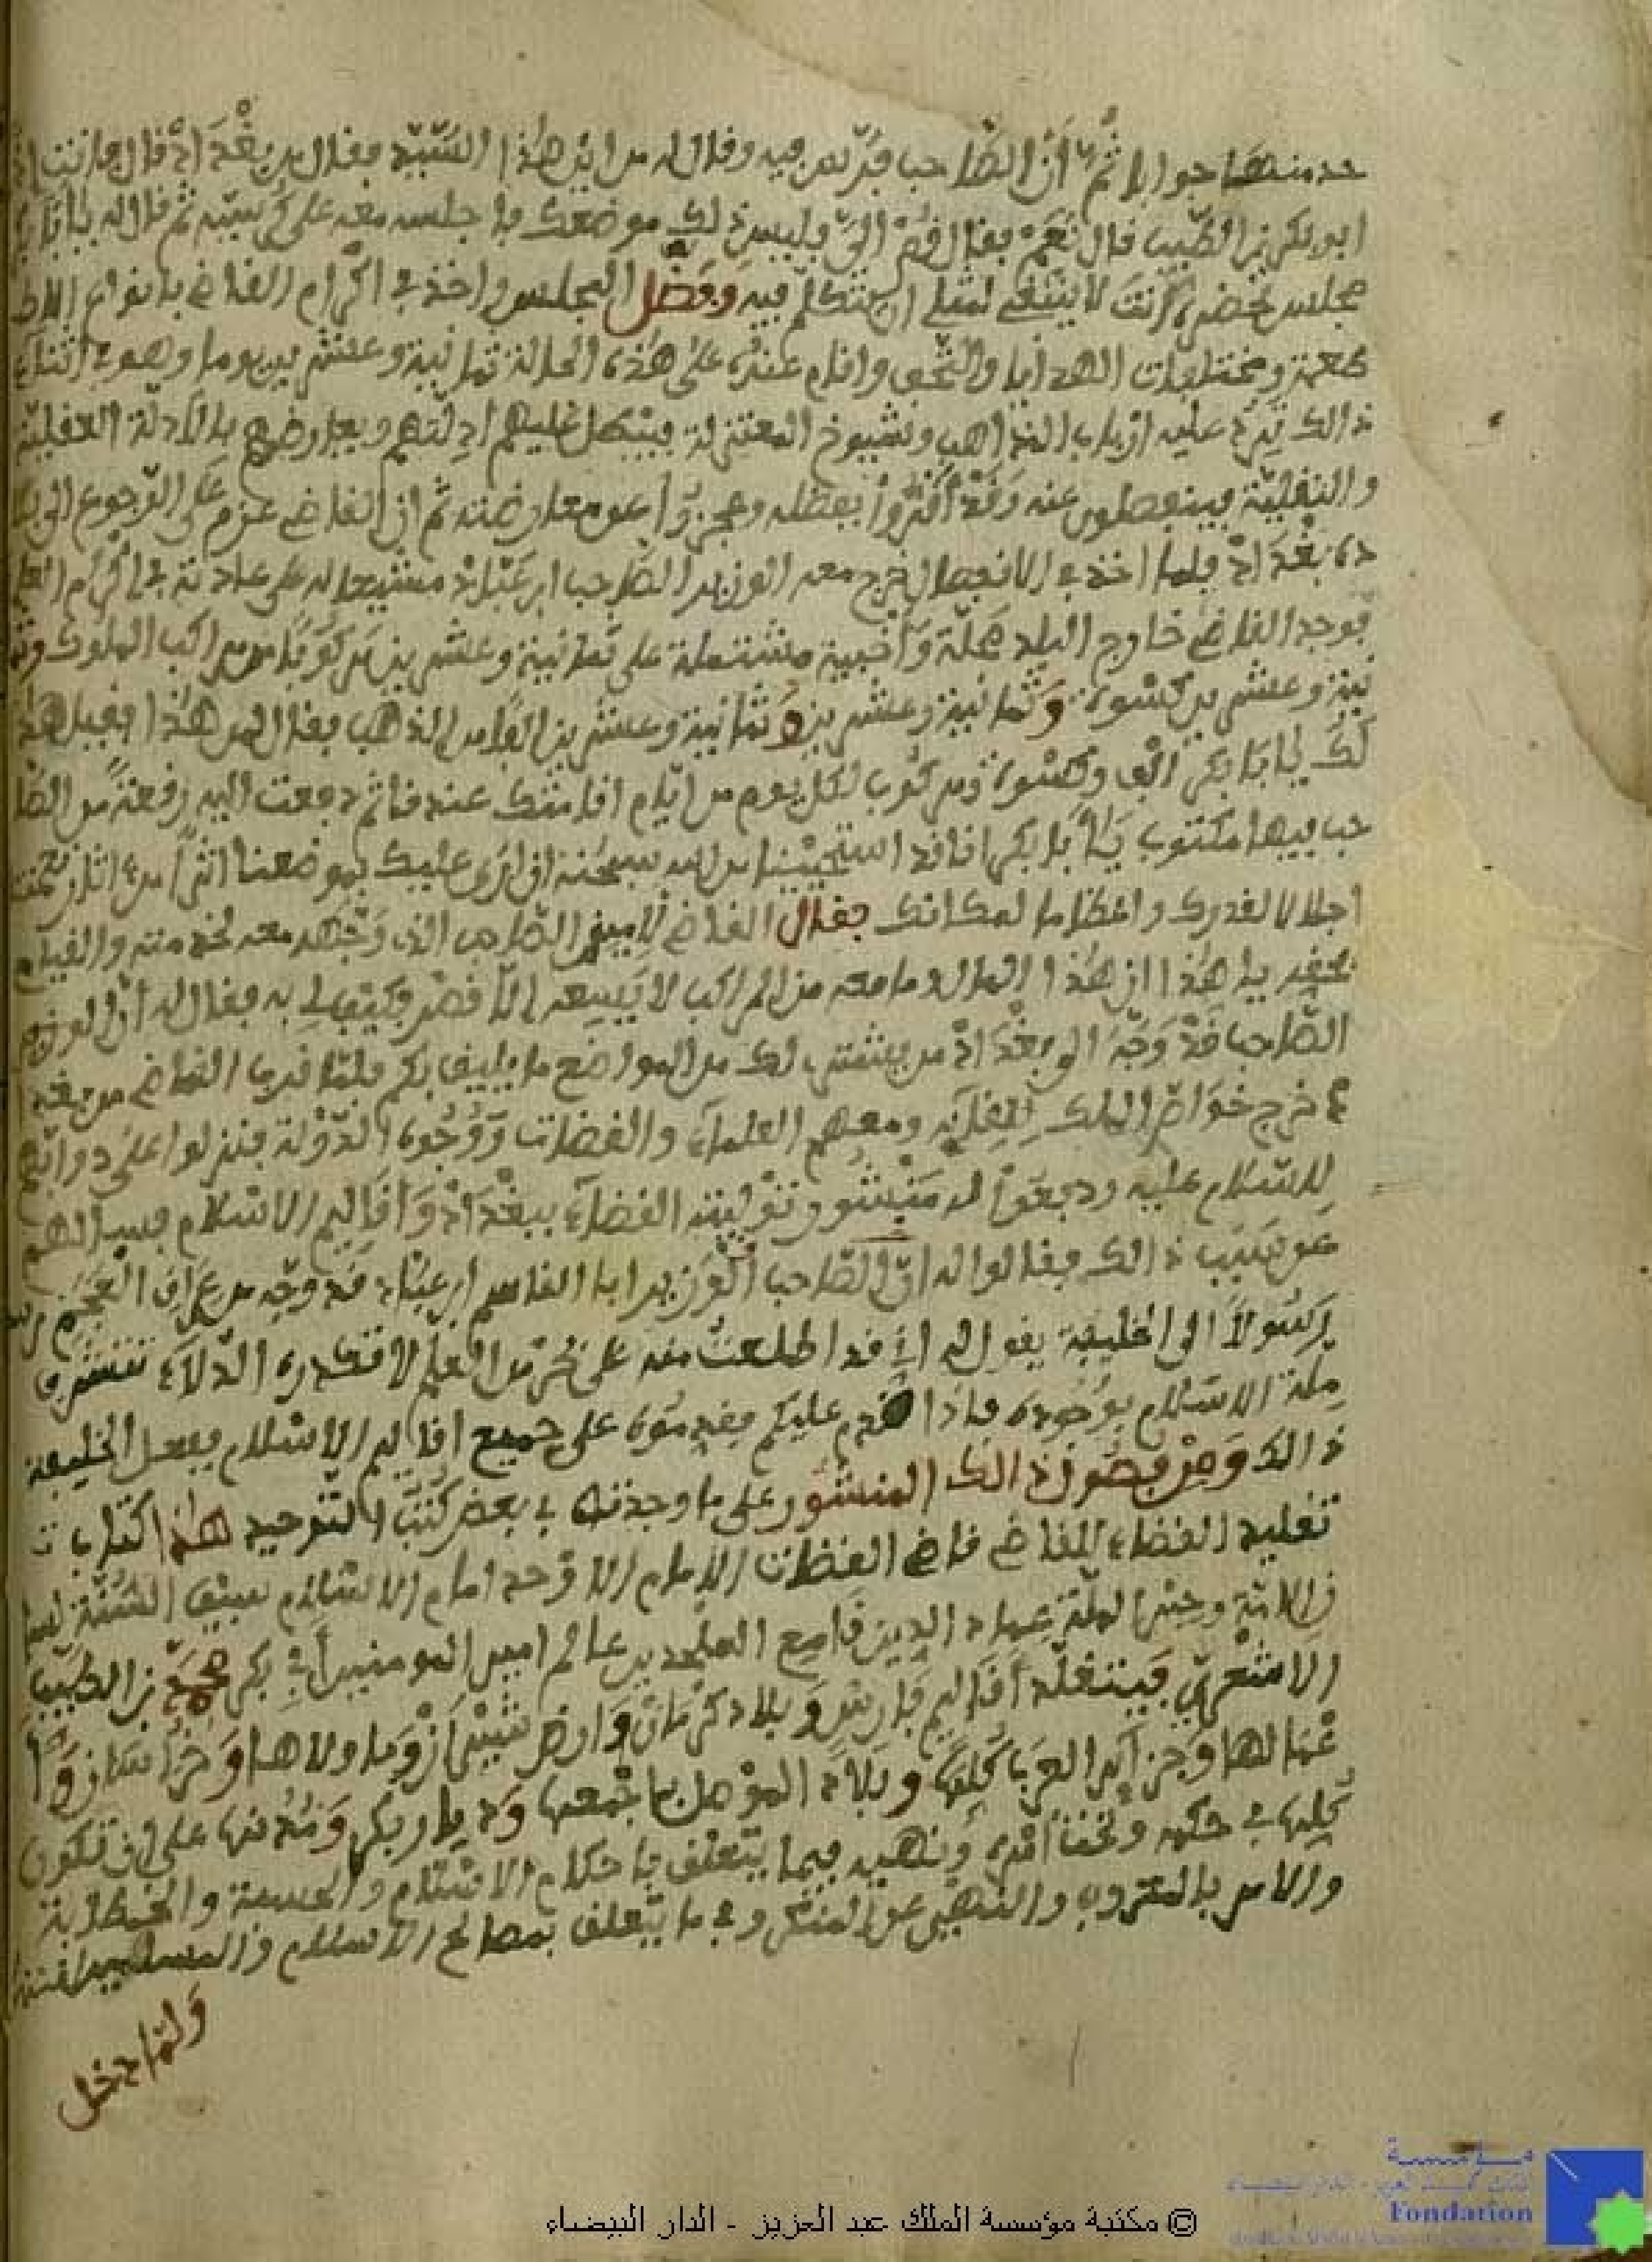 حد منها جوابا ثم ان الصاحب قرّبه وقال له من اين هذا السّيد فقال من بغداذ قال فانت
ابو بكر بن الطيب قال نعم فقال قم الىّ فليس ذلك موضعك فاجلسه معه على كرسيّه ثم قال له يا ابا
مجلس تحضره انت لا ينبغى لمثلى ان يتكلم فيه وفضّ المجلس واخذ في اكرام القاضى بانواع
ومختلفات الهدايا والتحف واقام عنده على هذه الحالة ثمانية وعشرين يوما وهو في اثناء
ذالك ترد عليه ارباب المذاهب وشيوخ المعتزلة فيبطل عليهم ادلتهم ويعارضهم بالادلة العقليّة
والنقليّة فينفصلون عنه وقد اقرّوا بفضله وعجزوا عن معارضته ثم ان القاضى عزم على الرجوع الى
بغداذ فلما اخذ في الانفصال خرج معه الوزير الصاحب ابن عبّاد مشيعا له على عادته في اكرام
فوجد القاضى خارج البلد محلّة واخبية مشتملة على ثمانية وعشرين مركوبا من مراكب الملوك
نية وعشرين كسوة وثمانية وعشرين وثمانية وعشرين الفا من الذهب فقال لمن هذا فقيل هذا
لك يا ابا بكر الف وكسوة ومركوب لكل يوم من ايام اقامتك عندنا ثم دفعت اليه رقعة من الصا
حب فيها مكتوب يا ابا بكر انا قد استحيينا من الله سبحنه ان نرى عليك بموضعنا اثرا من اثار
اجلالا لقدرك واعظاما لمكانك فقال القاضى لامين الصاحب الذى وجّهه معه لخدمته والقيام
يا هذا ان هذا المال وما معه من المراكب لا يسعه الا قصر وكيف لى به فقال له ان الوزير
الصاحب قد وجّه الى بغداذ من يشترى لك من المواضع ما يليق بكم فلما قرب القاضى من بغد
خرج خواص الملك للقآئه ومعهم العلمآء والقضات ووجوه الدولة فنزلوا على دوابّهم
للسّلام عليه ودفعوا له منشور توليته القضآء ببغداذ واقاليم الاسلام فسألهم
عن سبب ذالك فقالوا له ان الصاحب الوزير ابا القاسم ابن عبّاد قد وجّه من عراق العجم
رسولا الى الخليفة يقول له انّى قد اطلعت منه على بحر من العلم لا تكدره الدلاء تتشرف
ملة الاسلام بوجوده فاذا قدم عليكم فقدموه على جميع اقاليم الاسلام ففعل الخليفة
ذالك ومن فصول ذالك المنشور على ما وجدته في بعض كتب التوحيد هذا كتاب
تقليد القضاء للقاضى قاضى القضات الامام الاوحد امام الاسلام سيف السّنّة
الامّة وحبر الملّة عماد الدين قامع الملحدين عالم امير المومنين أبى بكر محمد بن الطيب
الاشعرىّ فيتقلّد اقاليم فارس وبلاد كرمان وارض وما ولاها وخراسان و
عمالها وجزائر العرب كلها وبلاد الموصل باجمعها وديار بكر ومدنها على ان تكون
كلها في حكمه وتحت امره ونهيه فيما يتعلق باحكام الاسلام والحسبة والخطابة
والامر بالمعروف والنهى عن المنكر وفي ما يتعلق بمصالح الاسلام والمسلمين
ولما دخل
© مكتبة مؤسسة الملك عبد العزيز - الدار البيضاء
مؤسسة
Fondation